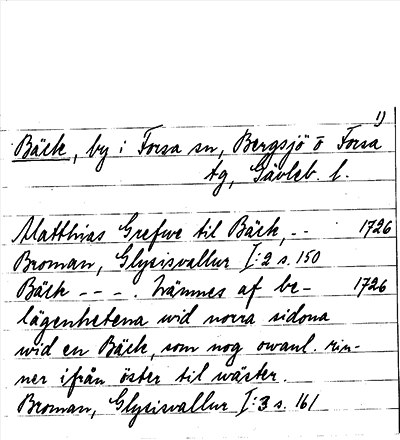 1)
Bäck, by i Forsa sn, Bergsjö o Forsa
tg, Gävleb. l.
Matthias Grefwe til Bäck, -- 1726
Broman, Glysisvallur I:2 s. 150
Bäck - - - . nämnes af be- 1726
lägenhetena wid norra sidona
wid en Bäck, som nog owanl. rin-
ner ifrån öster til wäster.
Broman, Glysisvallur I:3 s. 161